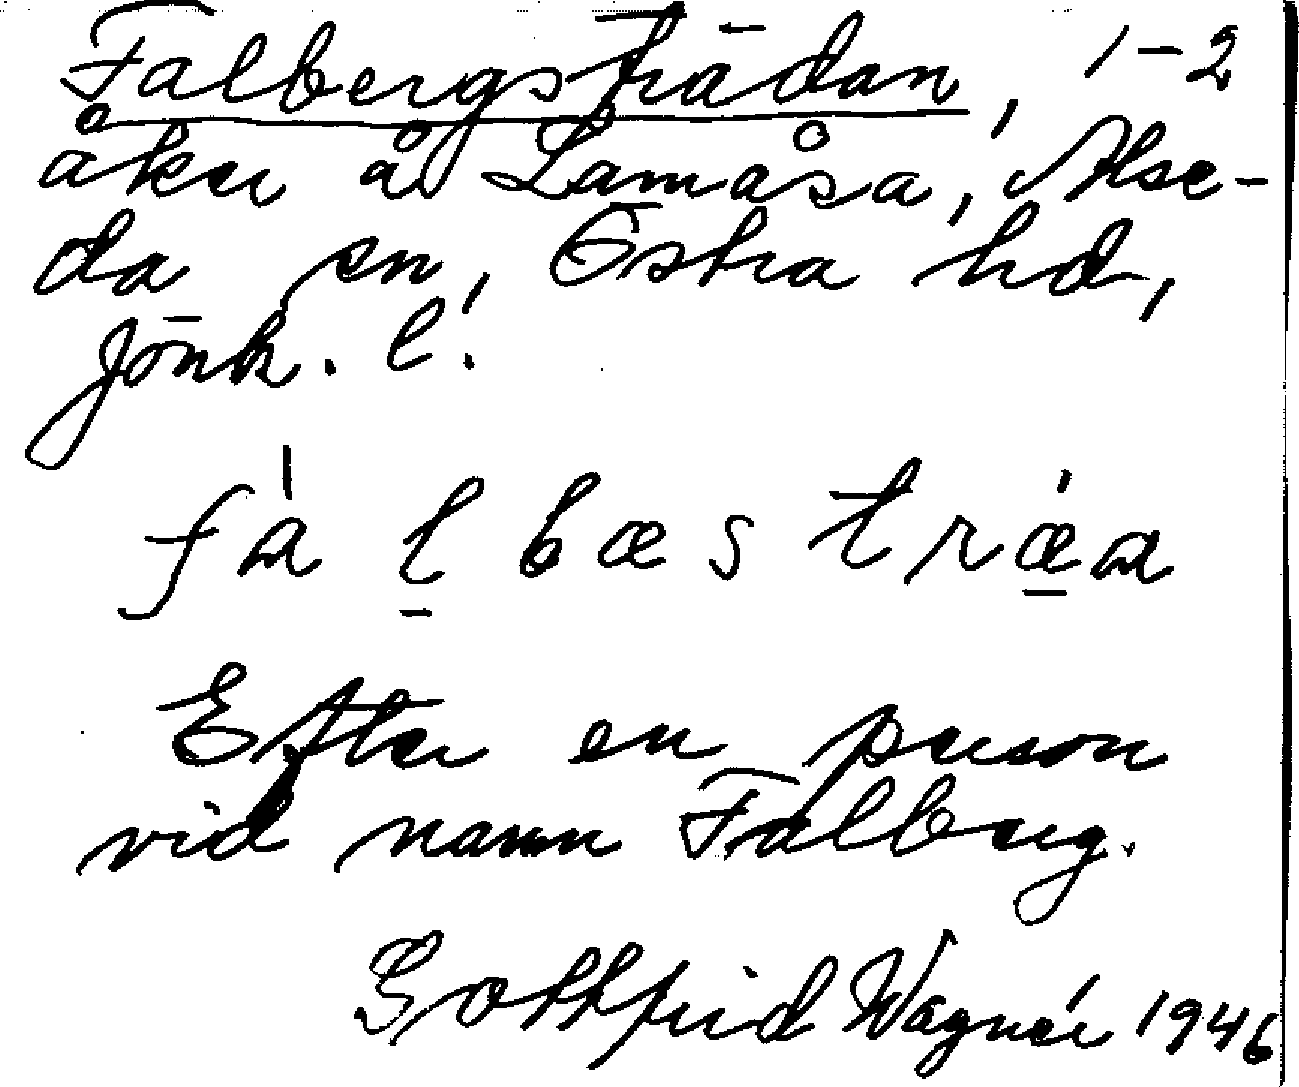 Falbergsträdan, 1-2
åker å Lamåsa, Alse-
da sn, Östra hd,
Jönk. l.
fàl̠bæstrǽ̠a
Efter en person
vid namn Falberg.
Gottfrid Wagnér 1946